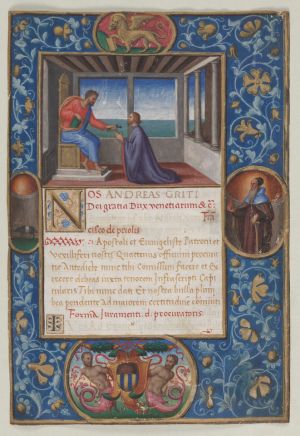 NOS ANDREAS GRITI
Dei gratia Dux venetiarum & c̄. Frā
cisco de priolis
Apostoli et Evangeliste Patroni et
vexilliferi nostri Quatinus officium procura
tie Antedicte nunc tibi Comissum facere et Ex
ercere debeas iuxta tenorem Infrascripti Capi
pendente Ad maiorem certitudinē comuniri
Forma Juramenti d. procuratoris.